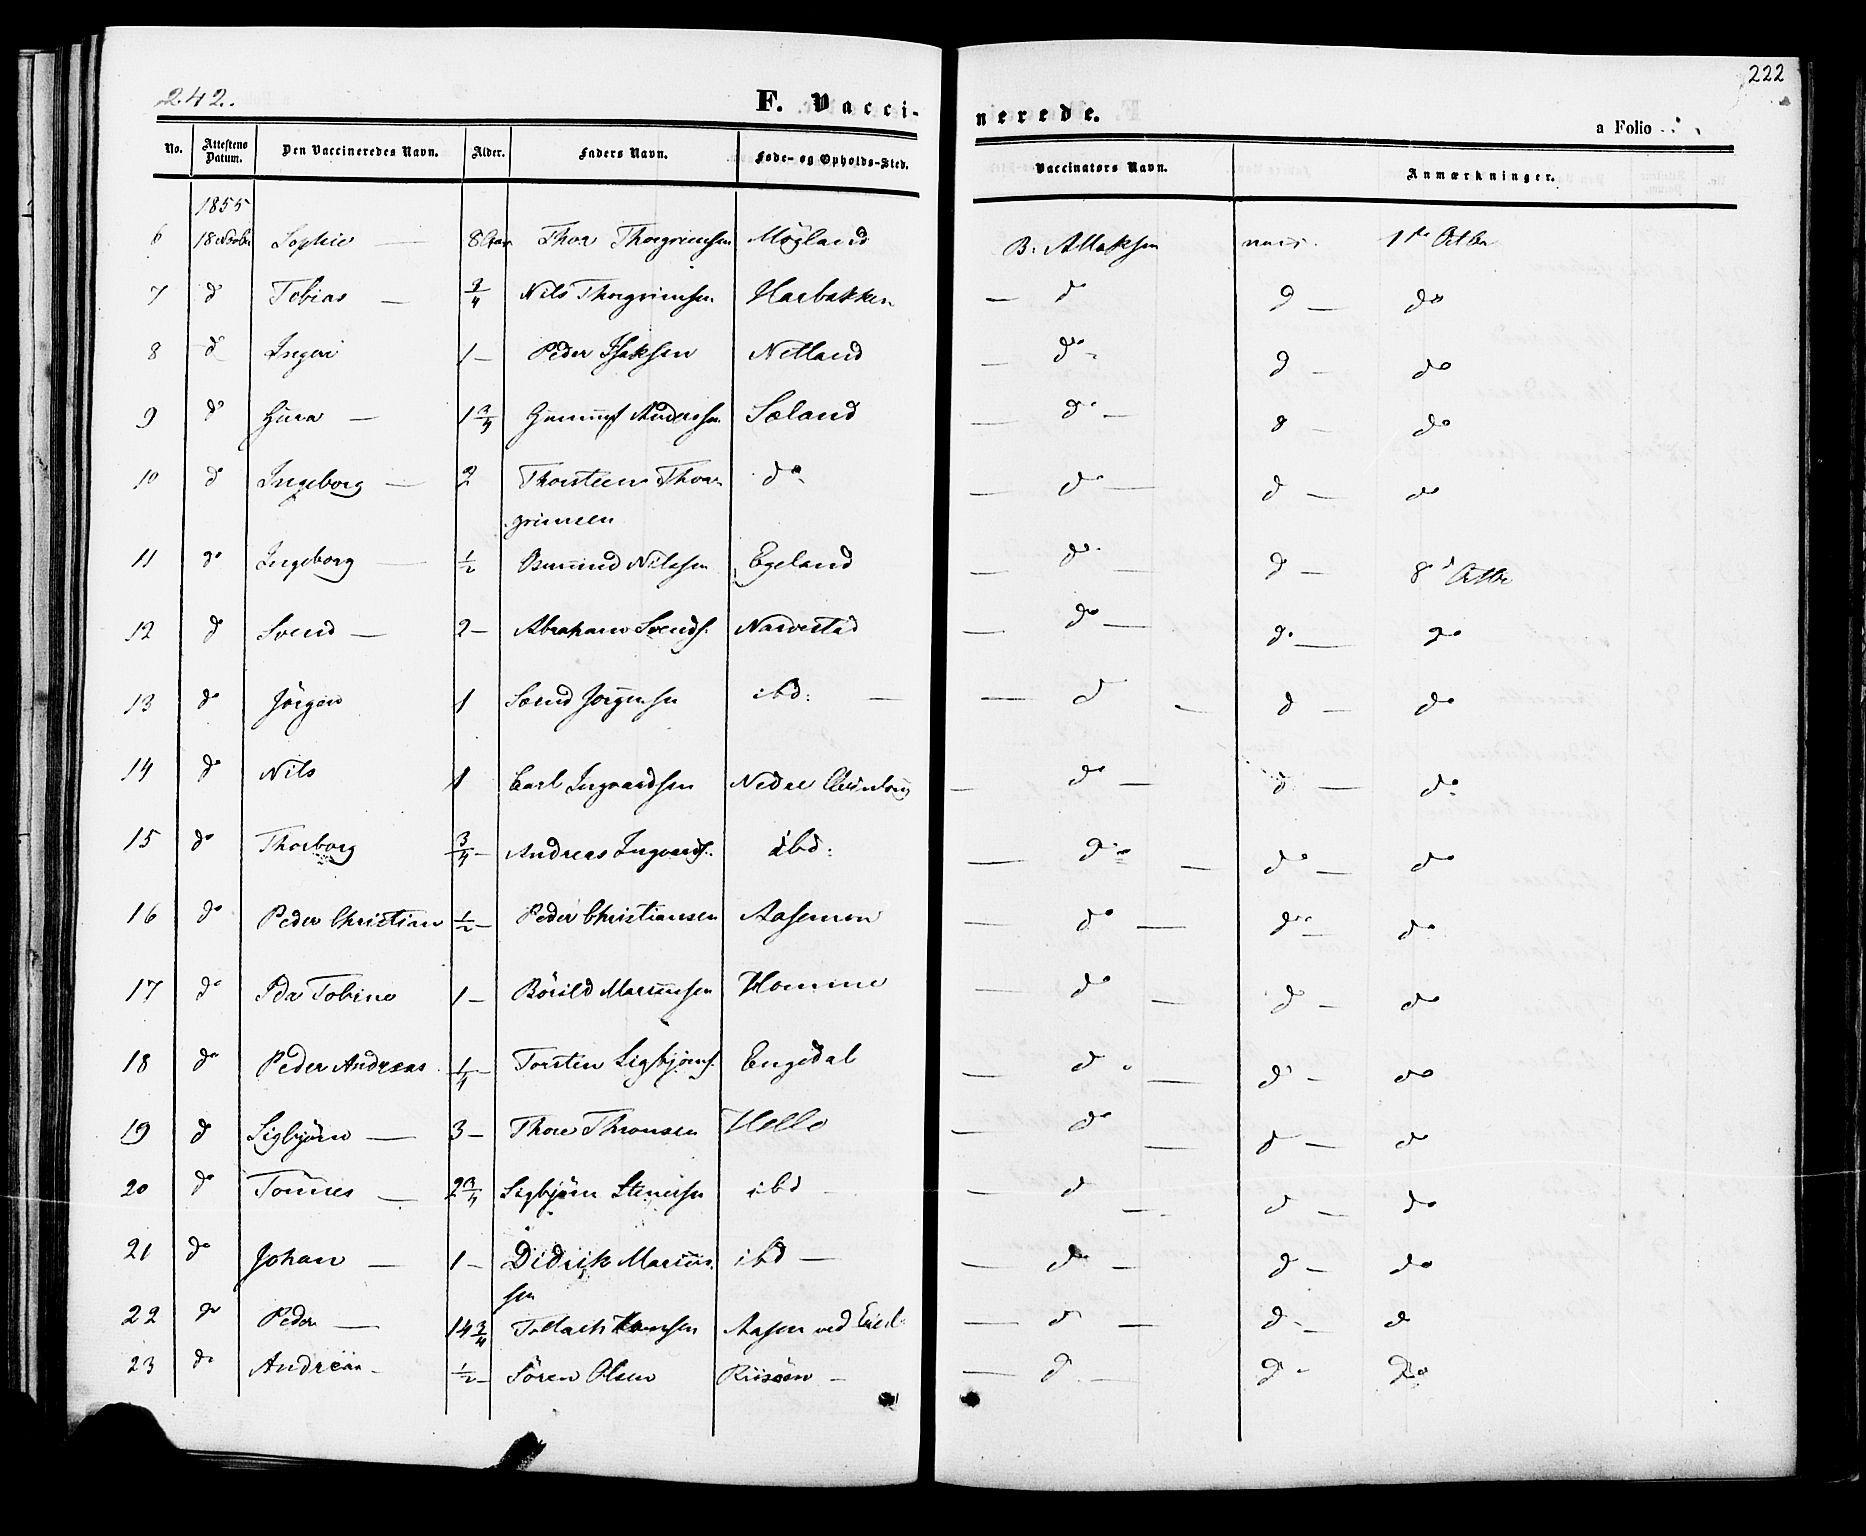 242.
F. Vacci-
nerede.
222
a Folio
No. Attestens Datum. Den Vaccineredes Navn. Alder. Faders Navn. Føde- og Opholds-Sted. Vaccinators Navn. Anmærkninger.
1855
6 18 Sophie — 8 Thor Thorgrimsen Møgland B: Allaksen 1ste Octbr
7 d Tobias — 3/4 Nils Thorgrimsen Harbakken — do d — do
8 do Ingeri 1 — Peder Isaksen Netland — do d — do
9 do Gura — 1 3/4 Gunnuf Anderssen Sæland — do — d — do
10 do Ingeborg — 2 Thorsteen Thor- do — do — d — do
grimsen
11 do Ingeborg — 1/2 Osmund Nilssen Egeland — do — d — 8d Octbr
12 d Svend — 2 — Abraham Svends. Narvestad — do — do — do
13 do Jörgen 1 Svend Jörgensen ibd: — — d — d — do
14 do Nils 1 Carl Ingvardsen Nedre — do — d — do
15 do Thorborg 3/4 — Andreas Ingvards. ibd: — do — do — do
16 do Peder Christian 1/2 — Peder Christiansen Aasemon — do — do — do
17 do Ida Tobine 1 — Börild Mariussen Homme — do — d — do
18 do Peder Andreas 1/4 — Torsten Sigbjörns. Engedal — do — d — do
19 d Sigbjörn — 3 — Thore Thronsen Helle — do — d — do
20 do Tönnes — 2 3/4 Sigbjörn Stenersen ibd — d — d — do
21 do Johan — 1 — Didrik Marius- ibd — — do — d — do
sen
22 do Peder — 14 3/4 Tollach Hansen Aasen ved — d — d — d
23 do Andreas — 1/2 — Sören Olsen Riisöen — — d — do do